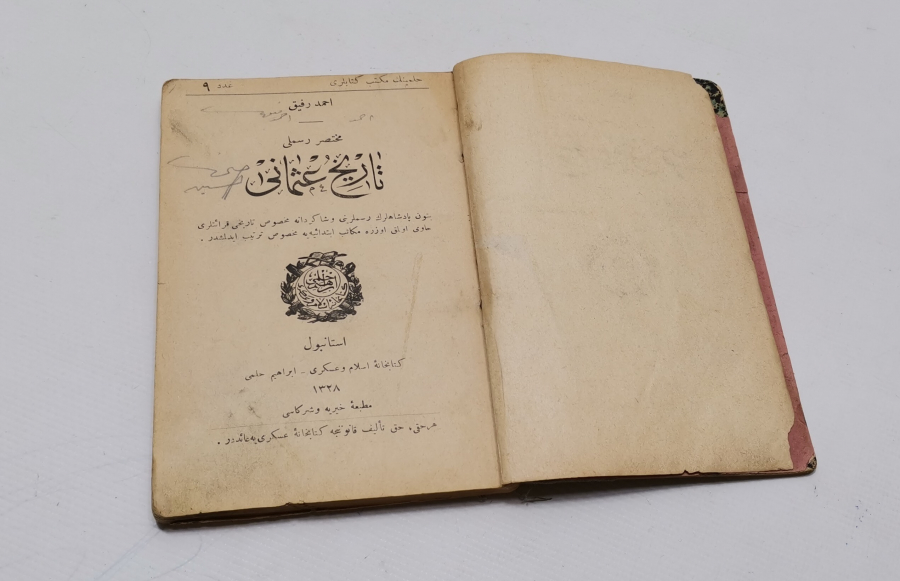 حلمینك مكتب كتابلری    عدد ۹
احمد رفیق
مختصر رسملی
تاریخ عثمانی
بتون پادشاهلرك رسملرینی و شاكردانه مخصوص تاریخی قرائتلری
حاوی اولق اوزره مكاتب ابتدائیه‌یه مخصوص ترتیب ایدلمشدر .
استانبول
كتابخانهٔ اسلام و عسكری ـ ابراهیم حلمی
۱۳۲۸
مطبعهٔ خیریه و شركاسی
هر حقی ، حق تألیف قانوننجه كتابخانهٔ عسكری‌یه عائددر .